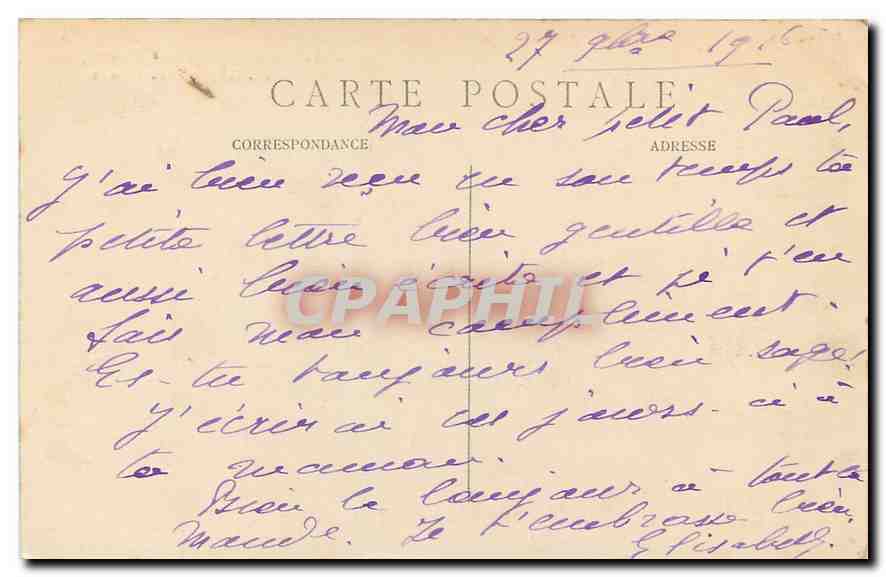 27 9bre 1916
CARTE POSTALE
Mon cher petit Paul,
CORRESPONDANCE
ADRESSE
J'ai bien reçu en son temps ta
petite lettre bien gentille et
aussi bien écrite et je t'en
fais mon compliment.
CPAPHIL
Es-tu toujours bien sage,
J'écrirai ces jours-ci à
ta maman.
Bien le bonjour à tout le
monde. Je t'embrasse bien,
Elisabeth.